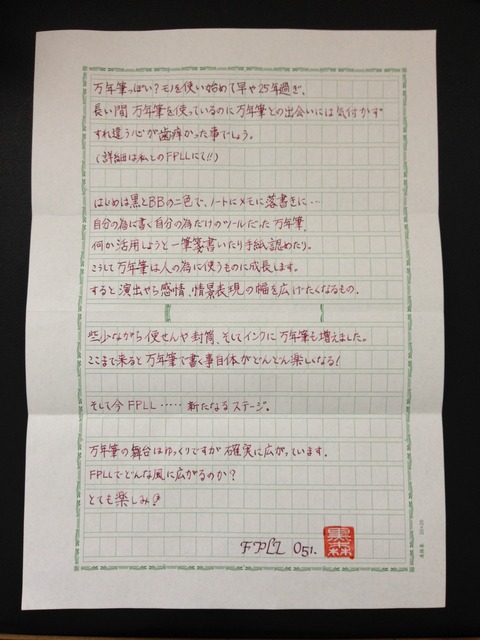 万年筆っぽい?モノを使い始めて早や25年過ぎ、
長い間万年筆を使っているのに万年筆との出会いには気付かず
すれ違う心が歯痒かった事でしょう。
(詳細は私とのFPLLにて!!)
はじめは黒とBBの二色で、ノートにメモに落書きに…
自分の為に書く自分の為だけのツールだった万年筆、
何か活用しようと一筆箋書いたり手紙認めたり。
こうして万年筆は人の為に使うものに成長します。
すると演出やら感情、情景表現の幅を広げたくなるもの。
些少ながら便せんや封筒、そしてインクに万年筆も増えました。
ここまで来ると万年筆で書く事自体がどんどん楽しくなる!
そして今FPLL……新たなるステージ。
万年筆の舞台はゆっくりですが確実に広がっています。
FPLLでどんな風に広がるのか?
とても楽しみ♪
FPLL 051.
20×20